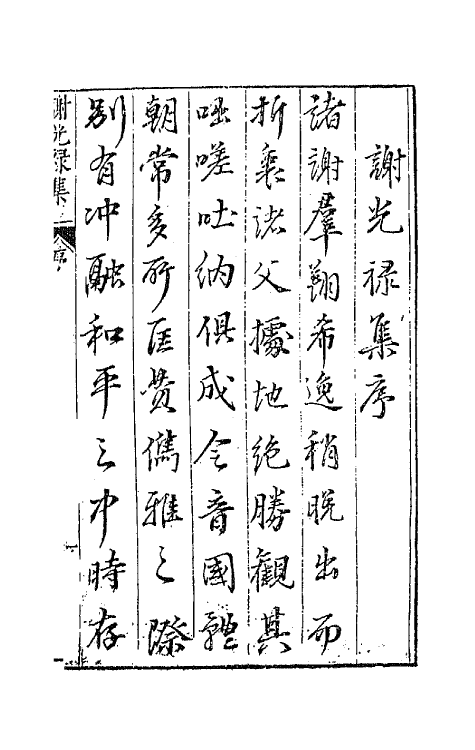 謝光禄集序
諸謝羣翔希逸稍晚出而
折衷諸父據地絶勝觀其
咄嗟吐納俱成令音國體
朝常多所匡贊儁雅之際
别有冲融和平之冲時存
謝光禄集 序 一